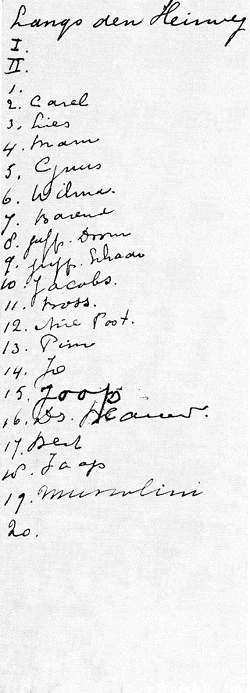 Langs den Heirweg
I.
II.
1.
2. Carel
3. Lies
4. Mam
5. Cynus
6. Wilma.
7. Barend
8. Juff. Doorn
9. Juff. Schaav
10. Jacobs.
11. Bross.
12. Post.
13. Pim
14. Jo
15. Joop
16. Ds.
17. Bert
18. Jaap
19. Mussolini
20.